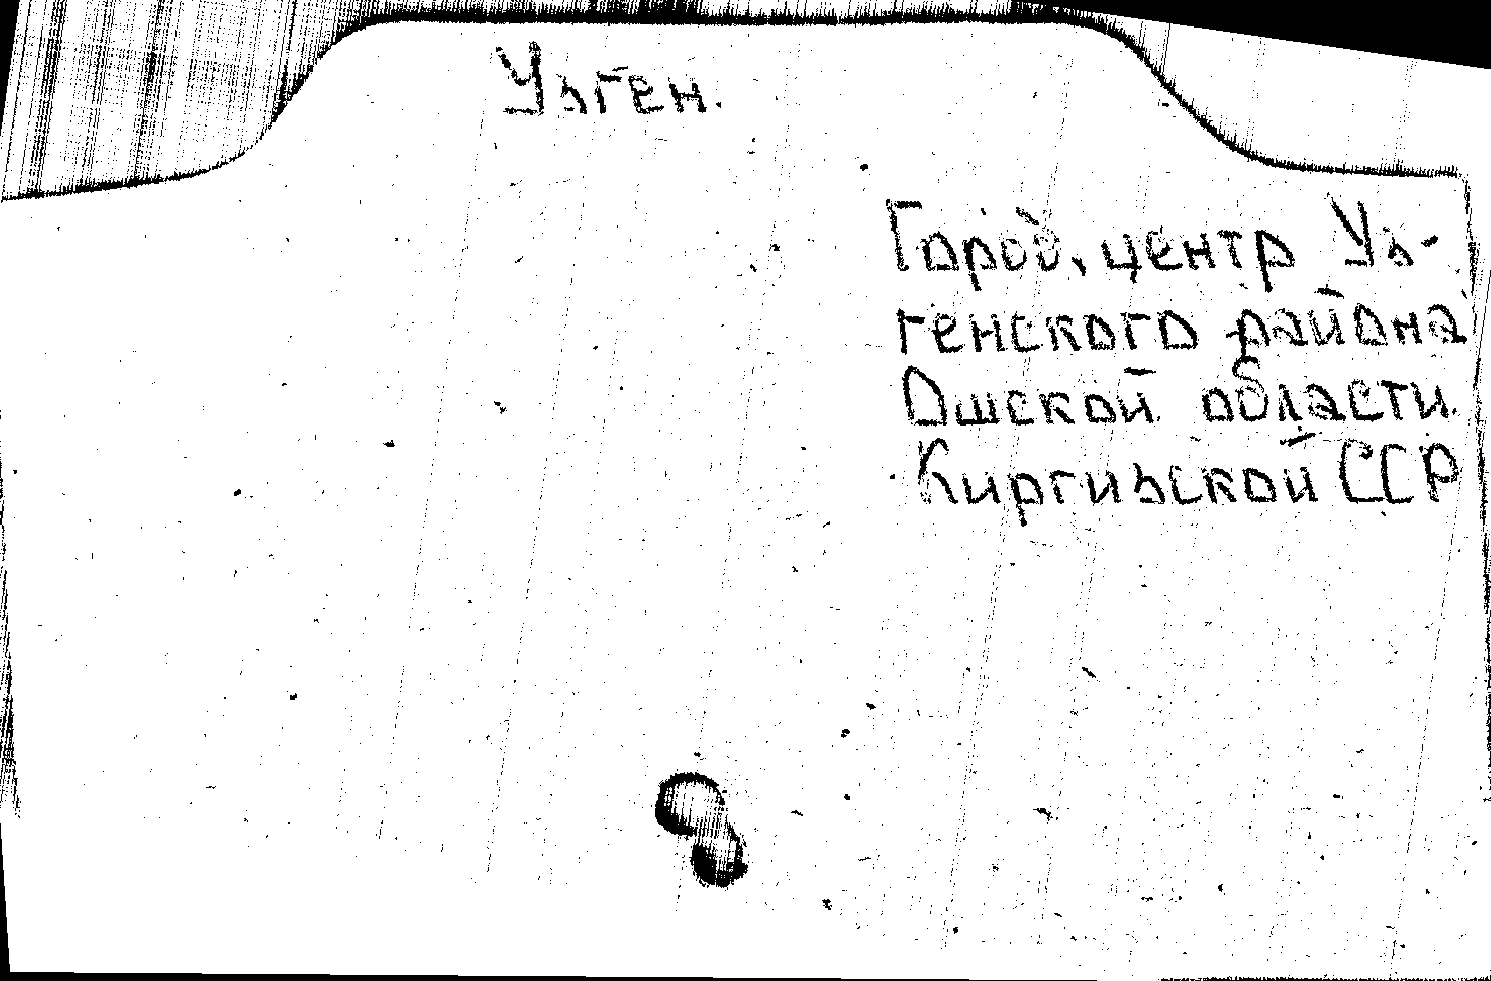 Узген.
Город, центр Уз-
генского района
Ошской области
Киргизской ССР